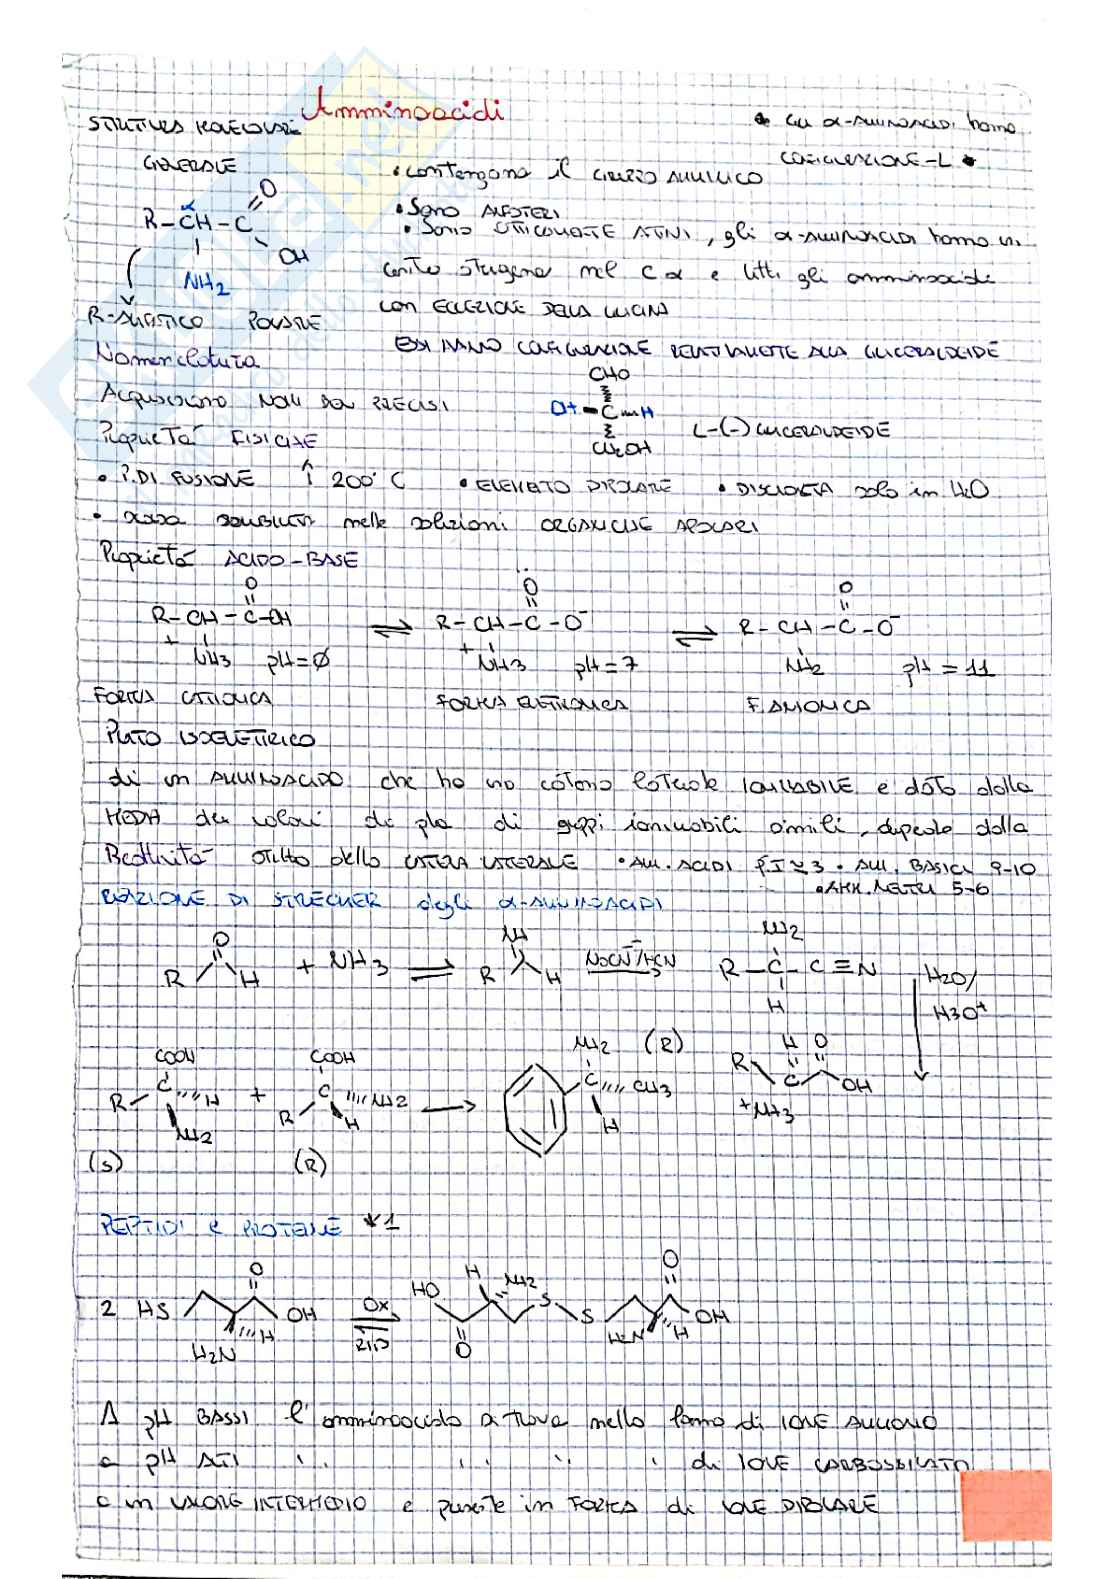 Amminoacidi
STRUTTURA MOLECOLARE
GENERALE
• GLI α-AMMINOACIDI hanno
CONFIGURAZIONE-L •
• contengono il GRUPPO AMMINICO
• Sono ANFOTERI
• Sono OTTICAMENTE ATTIVI, gli α-AMMINOACIDI hanno un
centro stereogeno nel C α e tutti gli amminoacidi
con ECCEZIONE DELLA GLICINA
R-CH-C
α
O
OH
NH2
R-ALIFATICO POLARE
ESSI HANNO CONFIGURAZIONE RELATIVAMENTE ALLA GLICERALDEIDE
Nomenclatura
Acquisiscono NOMI BEN PRECISI
CHO
OH-C-H
CH2OH
L-(-) GLICERALDEIDE
Proprietà FISICHE
• P.DI FUSIONE ↑ 200°C • ELEMENTO DIPOLARE • DISCIOLTA solo in H2O
• scarsa SOLUBILITÀ nelle soluzioni ORGANICHE APOLARI
Proprietà ACIDO-BASE
O O O
R-CH-C-OH ⇌ R-CH-C-O- ⇌ R-CH-C-O-
+NH3 pH=Ø +NH3 pH=7 NH2 pH=11
FORMA CATIONICA F. ANIONICA
PUNTO ISOELETTRICO
di un AMMINOACIDO che ha una catena laterale IONIZZABILE e dato dalla
MEDIA dei valori di pka di gruppi ionizzabili simili, dipende dalla
Reattività CATENA LATERALE • AM. ACIDI P.I ≃ 3 • AM. BASICI 9-10
• AMM. NEUTRI 5-6
REAZIONE DI STRECKER degli α-AMMINOACIDI
O NH NH2
R H + NH3 ⇌ R H NaCN/HCN R-C-C≡N H2O/
H H3O+
COOH COOH NH2 (R) H O
R C H + R C NH2 → C CH3 R C OH
NH2 H H +NH3
(S) (R)
PEPTIDI e PROTEINE *1
O HO H NH2 O
2 HS OH Ox S S OH
H2N H RID O H2N H
A pH BASSI l'amminoacido si trova nella forma di IONE AMMONIO
a pH ALTI " " " " di IONE CARBOSSILATO
a un VALORE INTERMEDIO è presente in FORMA di IONE DIPOLARE